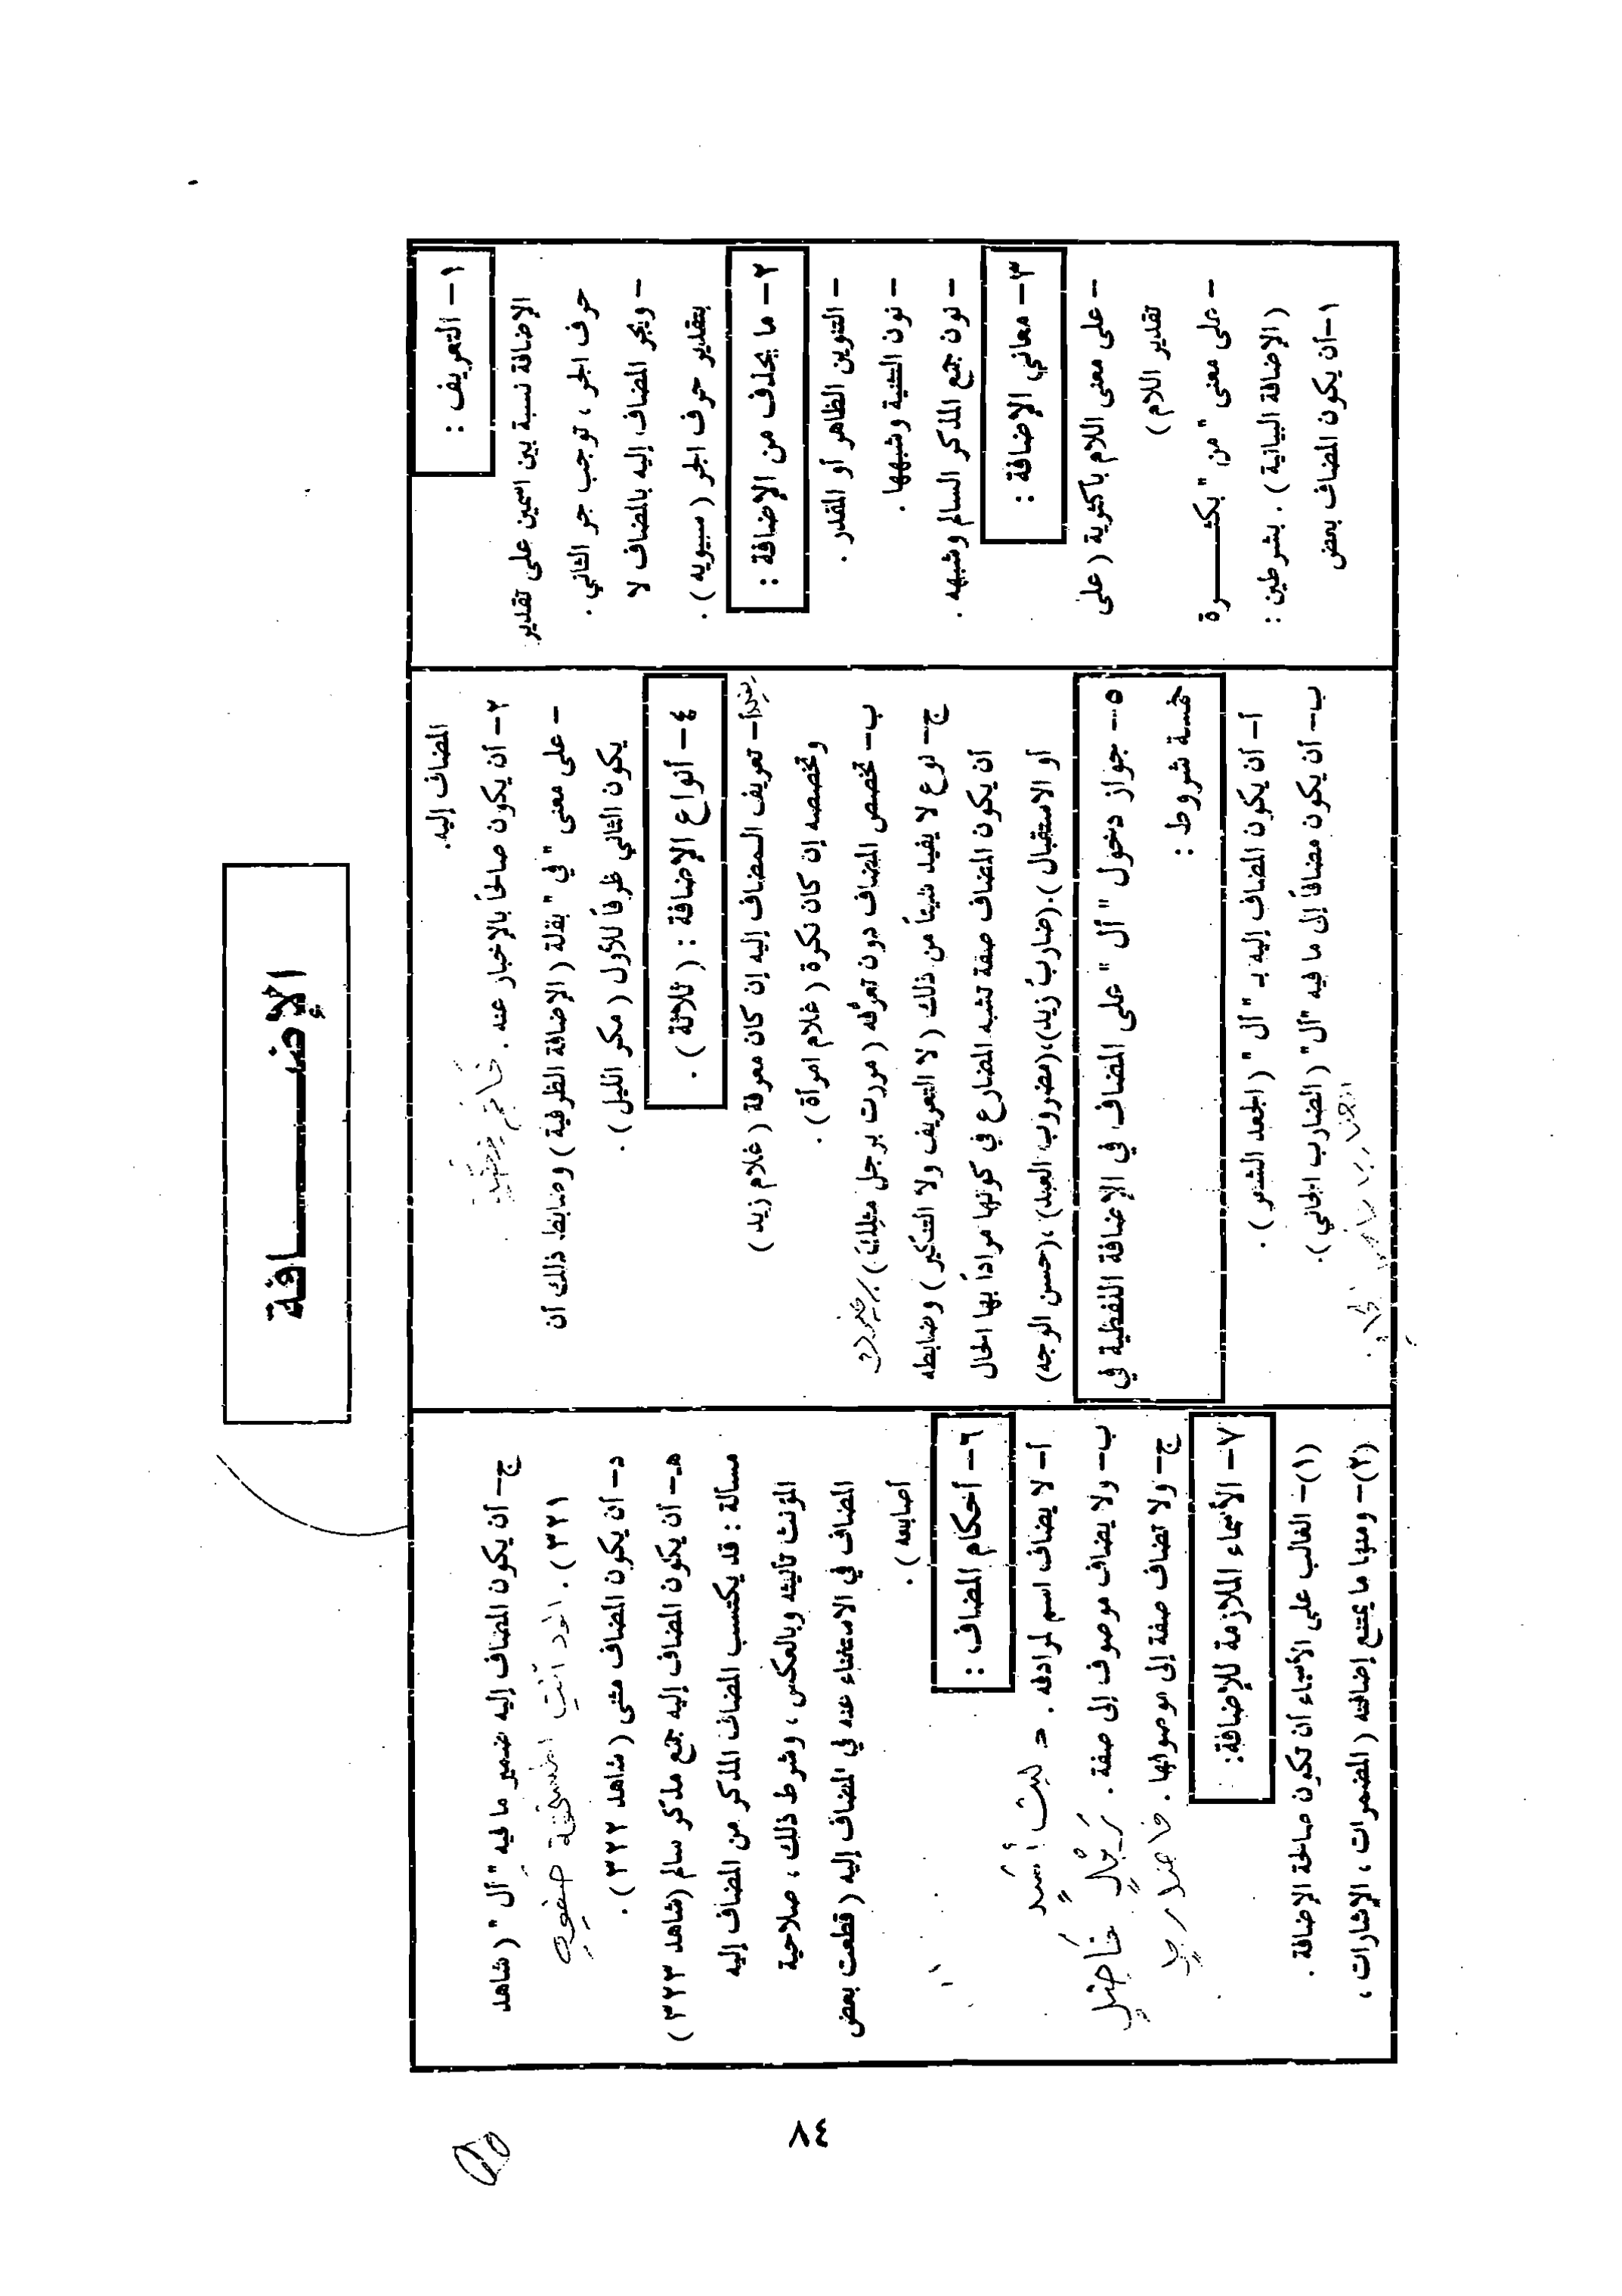 الإضـــــافة
١- التعريف :
الإضافة نسبة بين اسمين على تقدير
حرف الجر ، توجب جر الثاني .
- ويجر المضاف إليه بالمضاف لا
بتقدير حرف الجر ( سيبويه ) .
٢- ما يحذف من الإضافة :
- التنوين الظاهر أو المقدر .
- نون التثنية وشبهها .
- نون جمع المذكر السالم وشبهه .
٣- معاني الإضافة :
- على معنى اللام بأكثرية ( على
تقدير اللام )
- على معنى " من " بكثـــــرة
( الإضافة البيانية ) . بشرطين :
١-أن يكون المضاف بعض
المضاف إليه.
٢- أن يكون صالحاً بالإخبار عنه . خَاتَم فِضَّة
- على معنى " في " بقلة ( الإضافة الظرفية ) وضابط ذلك أن
يكون الثاني ظرفاً للأول ( مكر الليل ) .
٤- أنواع الإضافة : ( ثلاثة ) .
أ- تعريف المضاف إليه إن كان معرفة ( غلام زيد )
وتخصصه إن كان نكرة ( غلام امرأة ) .
ب- تخصص المضاف دون تعرُّفه ( مررت برجل مثلِك )
ج- نوع لا يفيد شيئاً من ذلك ( لا التعريف ولا التنكير ) وضابطه
أن يكون المضاف صفة تشبه المضارع في كونها مراداً بها الحال
أو الاستقبال ).(ضاربُ زيد)،(مضروب العبد) ،(حسن الوجه)
٥- جواز دخول " أل " على المضاف في الإضافة اللفظية في
خمسة شروط :
أ- أن يكون المضاف إليه بـ " أل " ( الجعد الشعر ) .
ب- أن يكون مضافاً إلى ما فيه "أل" ( الضارب الجاني ).
ج- أن يكون المضاف إليه ضمير ما فيه " أل " ( شاهد
٣٢١ ) . الود أنتِ المستحقة صفوِه
د- أن يكون المضاف مثنى ( شاهد ٣٢٢ ) .
هـ- أن يكون المضاف إليه جمع مذكر سالم (شاهد ٣٢٣ )
مسألة : قد يكتسب المضاف المذكر من المضاف إليه
المؤنث تأنيثه وبالعكس ، وشرط ذلك ، صلاحية
المضاف في الاستغناء عنه في المضاف إليه ( قطعت بعض
أصابعه ) .
٦- أحكام المضاف :
أ- لا يضاف اسم لمرادفه . ليث أسد
ب- ولا يضاف موصوف إلى صفة . رَجُلُ فَاضِلٍ
ج- ولا تضاف صفة إلى موصوفها . فاضل رجلٍ
٧- الأسماء الملازمة للإضافة:
(١)- الغالب على الأسماء أن تكون صالحة الإضافة .
(٢)- ومنها ما يمتنع إضافته ( المضمرات ، الإشارات ،
٨٤